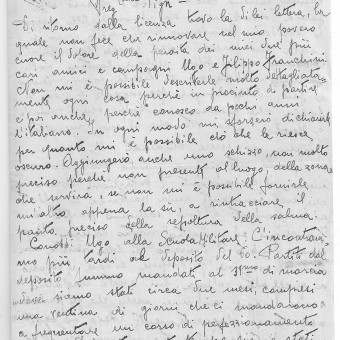 Di ritorno dalla licenza trovo la di lei lettera, la
quale non fece che rinnovare nel mio povero
cuore il dolore della perdita dei miei due più
cari amici e compagni Ugo e Filippo Franchini
Non mi è possibile descriverle molto dettagliata-
mente ogni cosa perchè in procinto di partire
e poi anche perchè conosco da pochi anni
l'italiano. In ogni modo mi sforzerò di chiarirle
per quanto mi è possibile ciò che le riesce
oscuro. Aggiungerò anche uno schizzo, non molto
preciso perchè non presente al luogo, della zona
che servirà, se non mi è possibile fornirle
un'altro appena la su, a rintracciare il
punto preciso della sepoltura della salma.
Conobbi Ugo alla Scuola Militare. L'incontram-
mo più tardi al deposito del 60. Partiti dal
deposito fummo mandati al 31mo di marcia
siamo stati circa due mesi, compresi
una ventina di giorni che ci mandarono
a frequentare un corso di perfezionamento